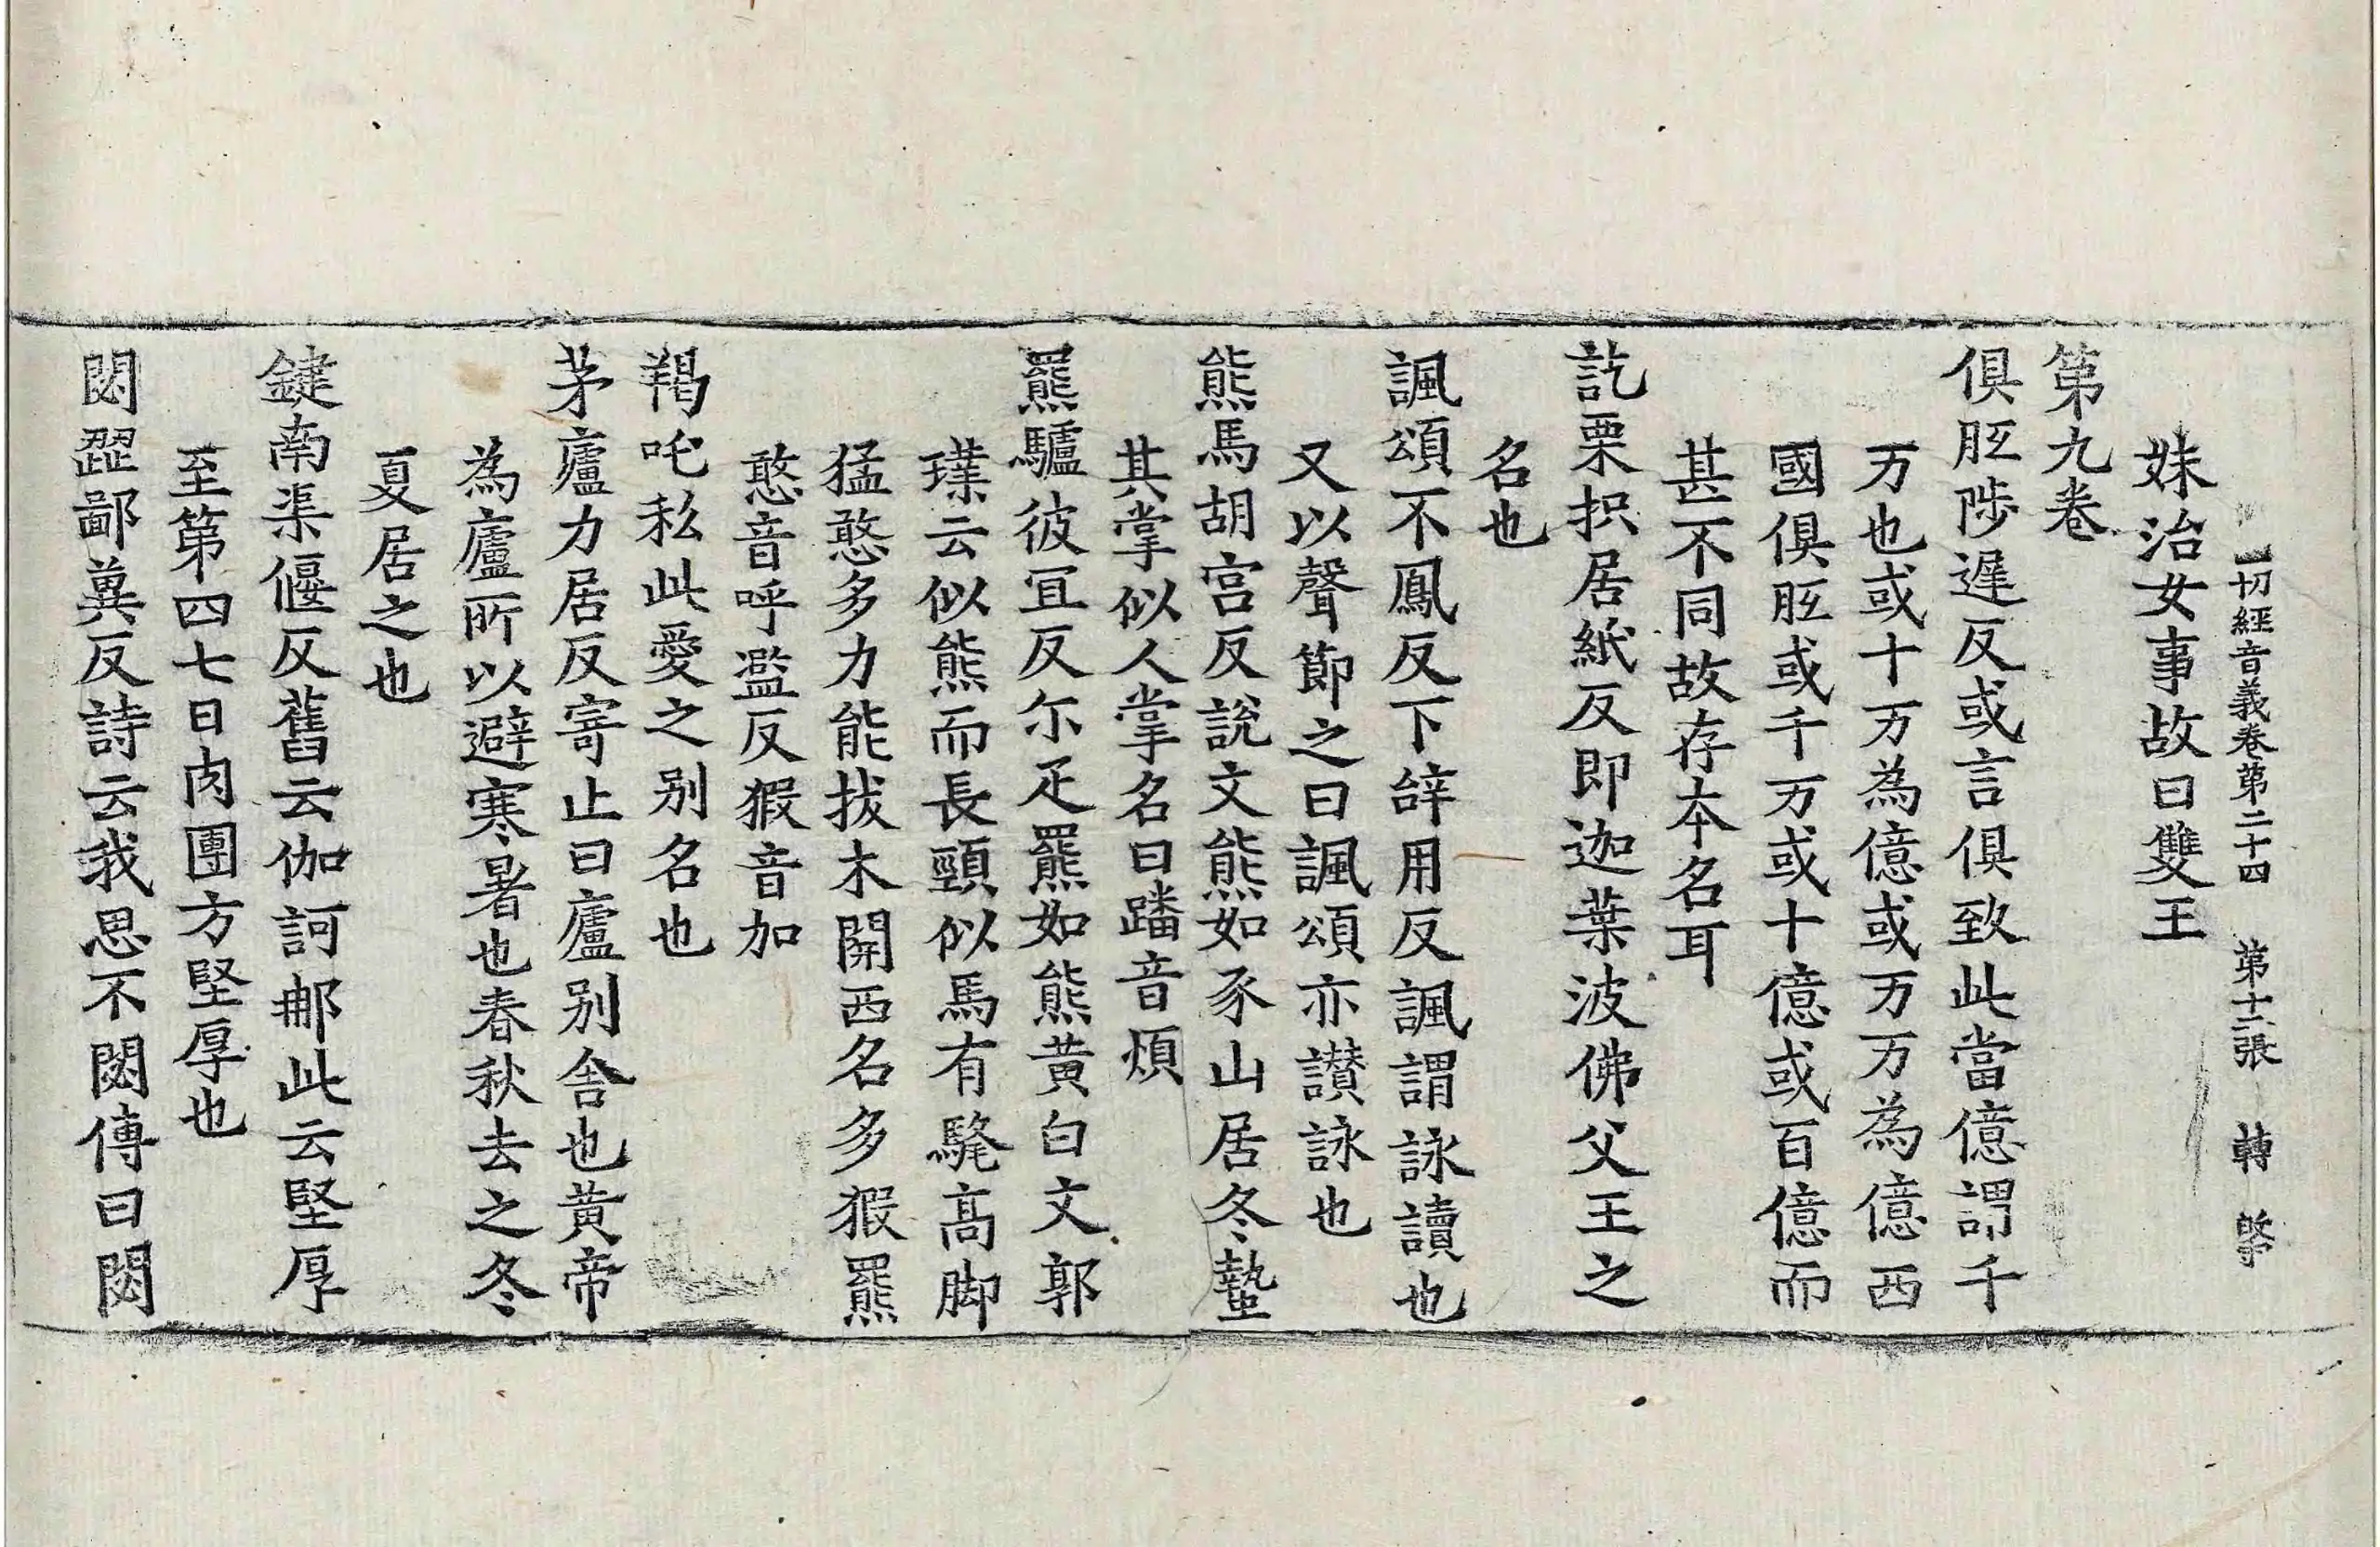 一切經音義卷第二十四 第十二張 轉 𥿄
妹治女事故曰雙王
第九卷
俱胝陟遲反或言俱致此當億謂千
万也或十万為億或万万為億西
國俱胝或千万或十億或百億而
甚不同故存本名耳
訖栗枳居紙反即迦葉波佛父王之
名也
諷頌不鳳反下辝用反諷謂詠讀也
又以聲節之曰諷頌亦讃詠也
熊馬胡宫反説文熊如豕山居冬蟄
其掌似人掌名曰蹯音煩
羆驢彼冝反尔疋羆如熊黄白文郭
璞云似熊而長頸似馬有騣髙脚
猛憨多力能拔木開西名多猳羆
憨音呼濫反猳音加
羯吒私此愛之别名也
茅廬力居反寄止曰廬别舍也黄帝
為廬所以避寒暑也春秋去之冬
夏居之也
鍵南渠偃反舊云伽訶𨚗此云堅厚
至第四七日肉團方堅厚也
閟澀鄙冀反詩云我思不閟傳曰閟